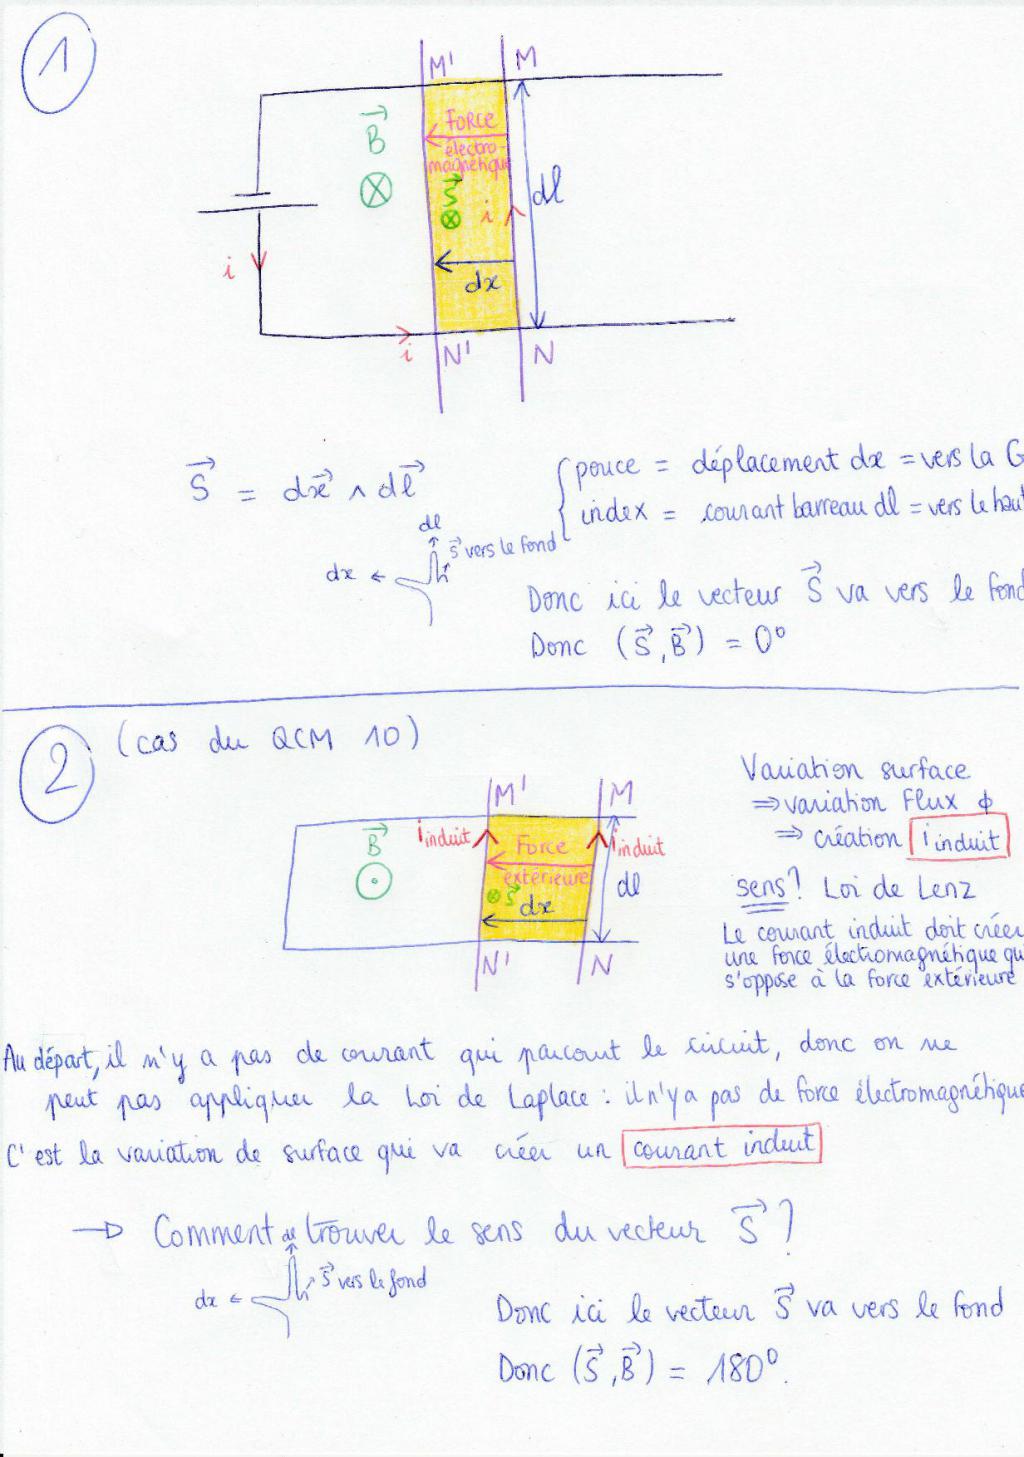 1
M' M
B
Force
électro-
magnétique
S
i
dl
i
dx
i
N' N
S = dx ∧ dl
pouce = déplacement dx = vers la G
index = courant barreau dl = vers le haut
dl
S vers le fond
dx ←
Donc ici le vecteur S va vers le fond
Donc (S, B) = 0°
2 (cas du QCM 10)
M' M
B
i induit
Force
extérieure
i induit
S
dx
dl
N' N
Variation surface
⇒ variation Flux ϕ
⇒ création i induit
sens? Loi de Lenz
Le courant induit doit créer
une force électromagnétique qui
s'oppose à la force extérieure
Au départ, il n'y a pas de courant qui parcourt le circuit, donc on ne
peut pas appliquer la Loi de Laplace : il n'y a pas de force électromagnétique
C'est la variation de surface qui va créer un courant induit
→ Comment trouver le sens du vecteur S ?
dl
S vers le fond
dx ←
Donc ici le vecteur S va vers le fond
Donc (S, B) = 180°.